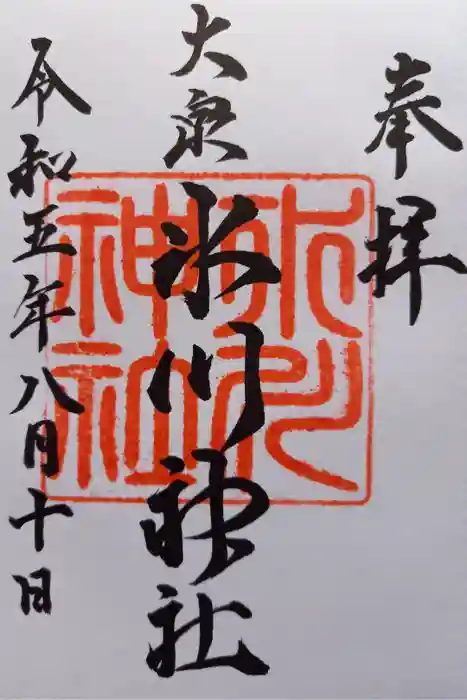 奉拝
大泉氷川神社
令和五年八月十日
氷川
神社